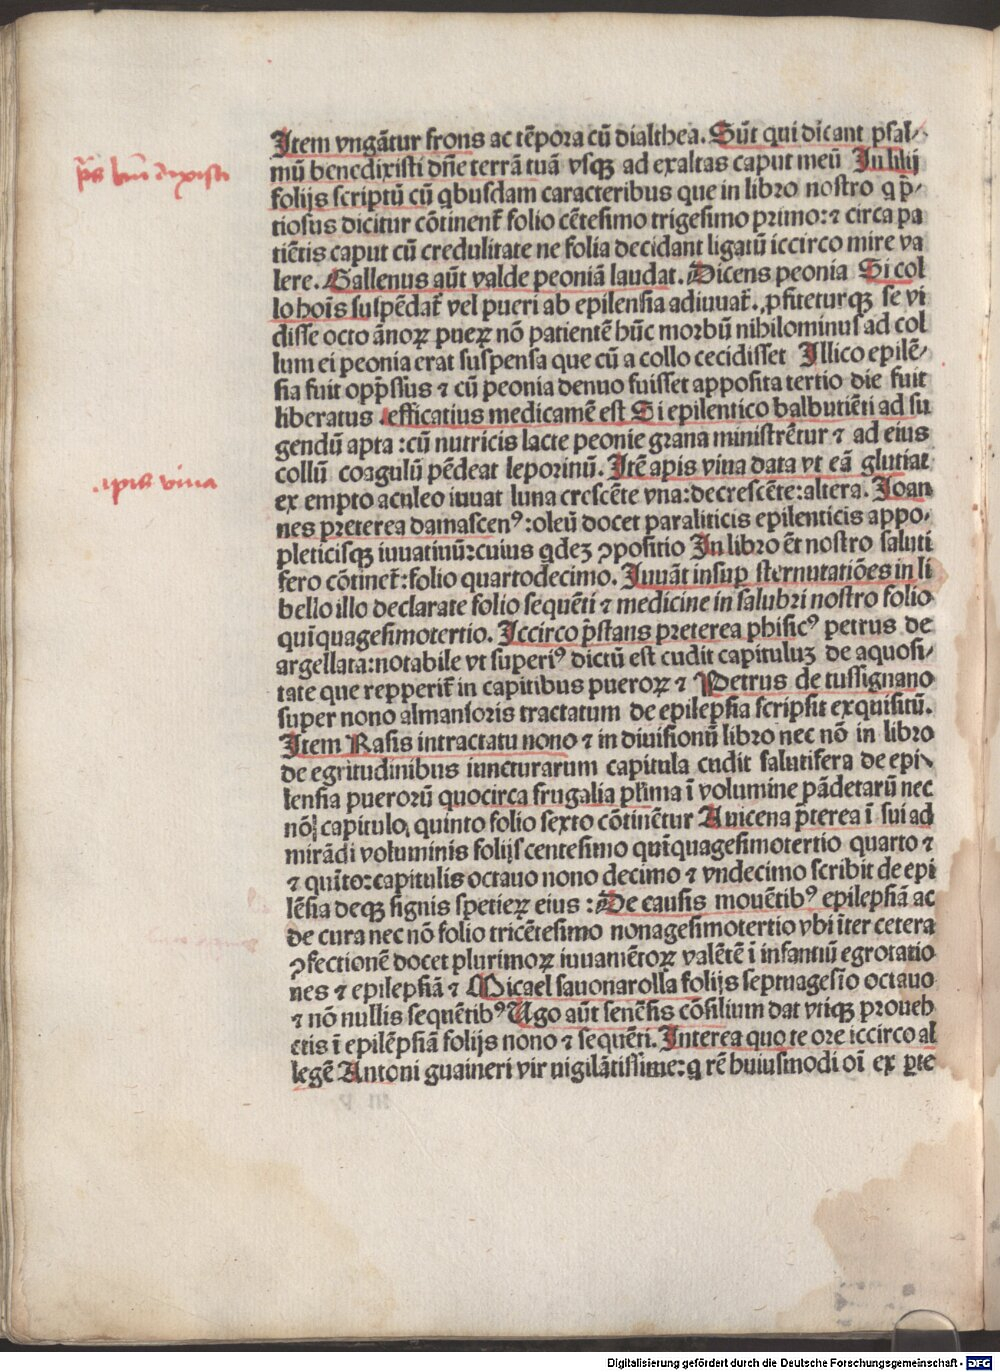 Item vngãtur frons ac tẽpora cũ dialthea. Sũt qui dicant psal-
ps bñdixisti
mũ benedixisti dñe terrã tuã vsqꝫ ad exaltas caput meũ In lilij
folijs scriptũ cũ qbusdam caracteribus que in libro nostro q p̃-
tiosus dicitur cõtinent̃ folio cẽtesimo trigesimo primo: ⁊ circa pa
tiẽtis caput cũ credulitate ne folia decidant ligatũ iccirco mire va
lere. Gallenus aũt valde peoniã laudat. Dicens peonia Si col
lo hoĩs suspẽdat̃ vel pueri ab epilensia adiuuat̃. ꝓfiteturqꝫ se vi
disse octo ãnoꝝ pueꝝ nõ patientẽ hũc morbũ nihilominus ad col
lum ei peonia erat suspensa que cũ a collo cecidisset Illico epilẽ-
sia fuit opp̃ssus ⁊ cũ peonia denuo fuisset apposita tertio die fuit
liberatus .efficatius medicamẽ est Si epilentico balbutiẽti ad su
gendũ apta : cũ nutricis lacte peonie grana ministrẽtur ⁊ ad eius
collũ coagulũ pẽdeat leporinũ. Itẽ apis viua data vt eã glutiat
apis viua
ex empto aculeo iuuat luna crescẽte vna: decrescẽte: altera. Joan
nes preterea damascenꝰ: oleũ docet paraliticis epilenticis appo-
pleticisqꝫ iuuatiuũ: cuius qdeꝫ ꝯpositio In libro ẽt nostro saluti
fero cõtinet̃: folio quartodecimo. Juuãt insup sternutatiões in li
bello illo declarate folio sequẽti ⁊ medicine in salubri nostro folio
quĩquagesimotertio. Iccirco p̃stans preterea phisicꝰ petrus de
argellata: notabile vt superiꝰ dictũ est cudit capituluꝫ de aquosi-
tate que repperit̃ in capitibus pueroꝝ ⁊ Petrus de tussignano
super nono almansoris tractatum de epilepsia scripsit exquisitũ.
Item Rasis intractatu nono ⁊ in diuisionũ libro nec nõ in libro
de egritudinibus iuncturarum capitula cudit salutifera de epi-
lensia puerorũ quocirca frugalia plĩma ĩ volumine pãdetarũ nec
nõ capitulo, quinto folio sexto cõtinẽtur Auicena p̃terea ĩ sui ad
mirãdi voluminis folijs centesimo quĩquagesimotertio quarto ⁊
⁊ quĩto: capitulis octauo nono decimo ⁊ vndecimo scribit de epi
lẽsia deqꝫ signis spetieꝝ eius : De causis mouẽtibꝰ epilepsiã ac
de cura nec nõ folio tricẽtesimo nonagesimotertio vbi ĩter cetera
ꝯfectionẽ docet plurimoꝝ iuuamẽtoꝝ valẽtẽ ĩ infantiũ egrotatio
nes ⁊ epilepsiã ⁊ Micael sauonarolla folijs septuagesĩo octauo
⁊ nõ nullis sequẽtibꝰ Ugo aũt senẽsis cõsilium dat vtiqꝫ proueh
ctis ĩ epilẽpsiã folijs nono ⁊ sequẽti. Interea quo te ore iccirco al
legẽ Antoni guaineri vir vigilãtissime: q rẽ huiusmodi oĩ ex ꝑte
Digitalisierung gefördert durch die Deutsche Forschungsgemeinschaft - DFG